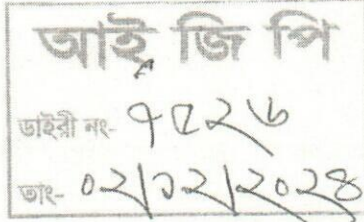 আই জি পি
ডাইরী নং- ৭৫২৬
তাং- ০২/১২/২০২৪